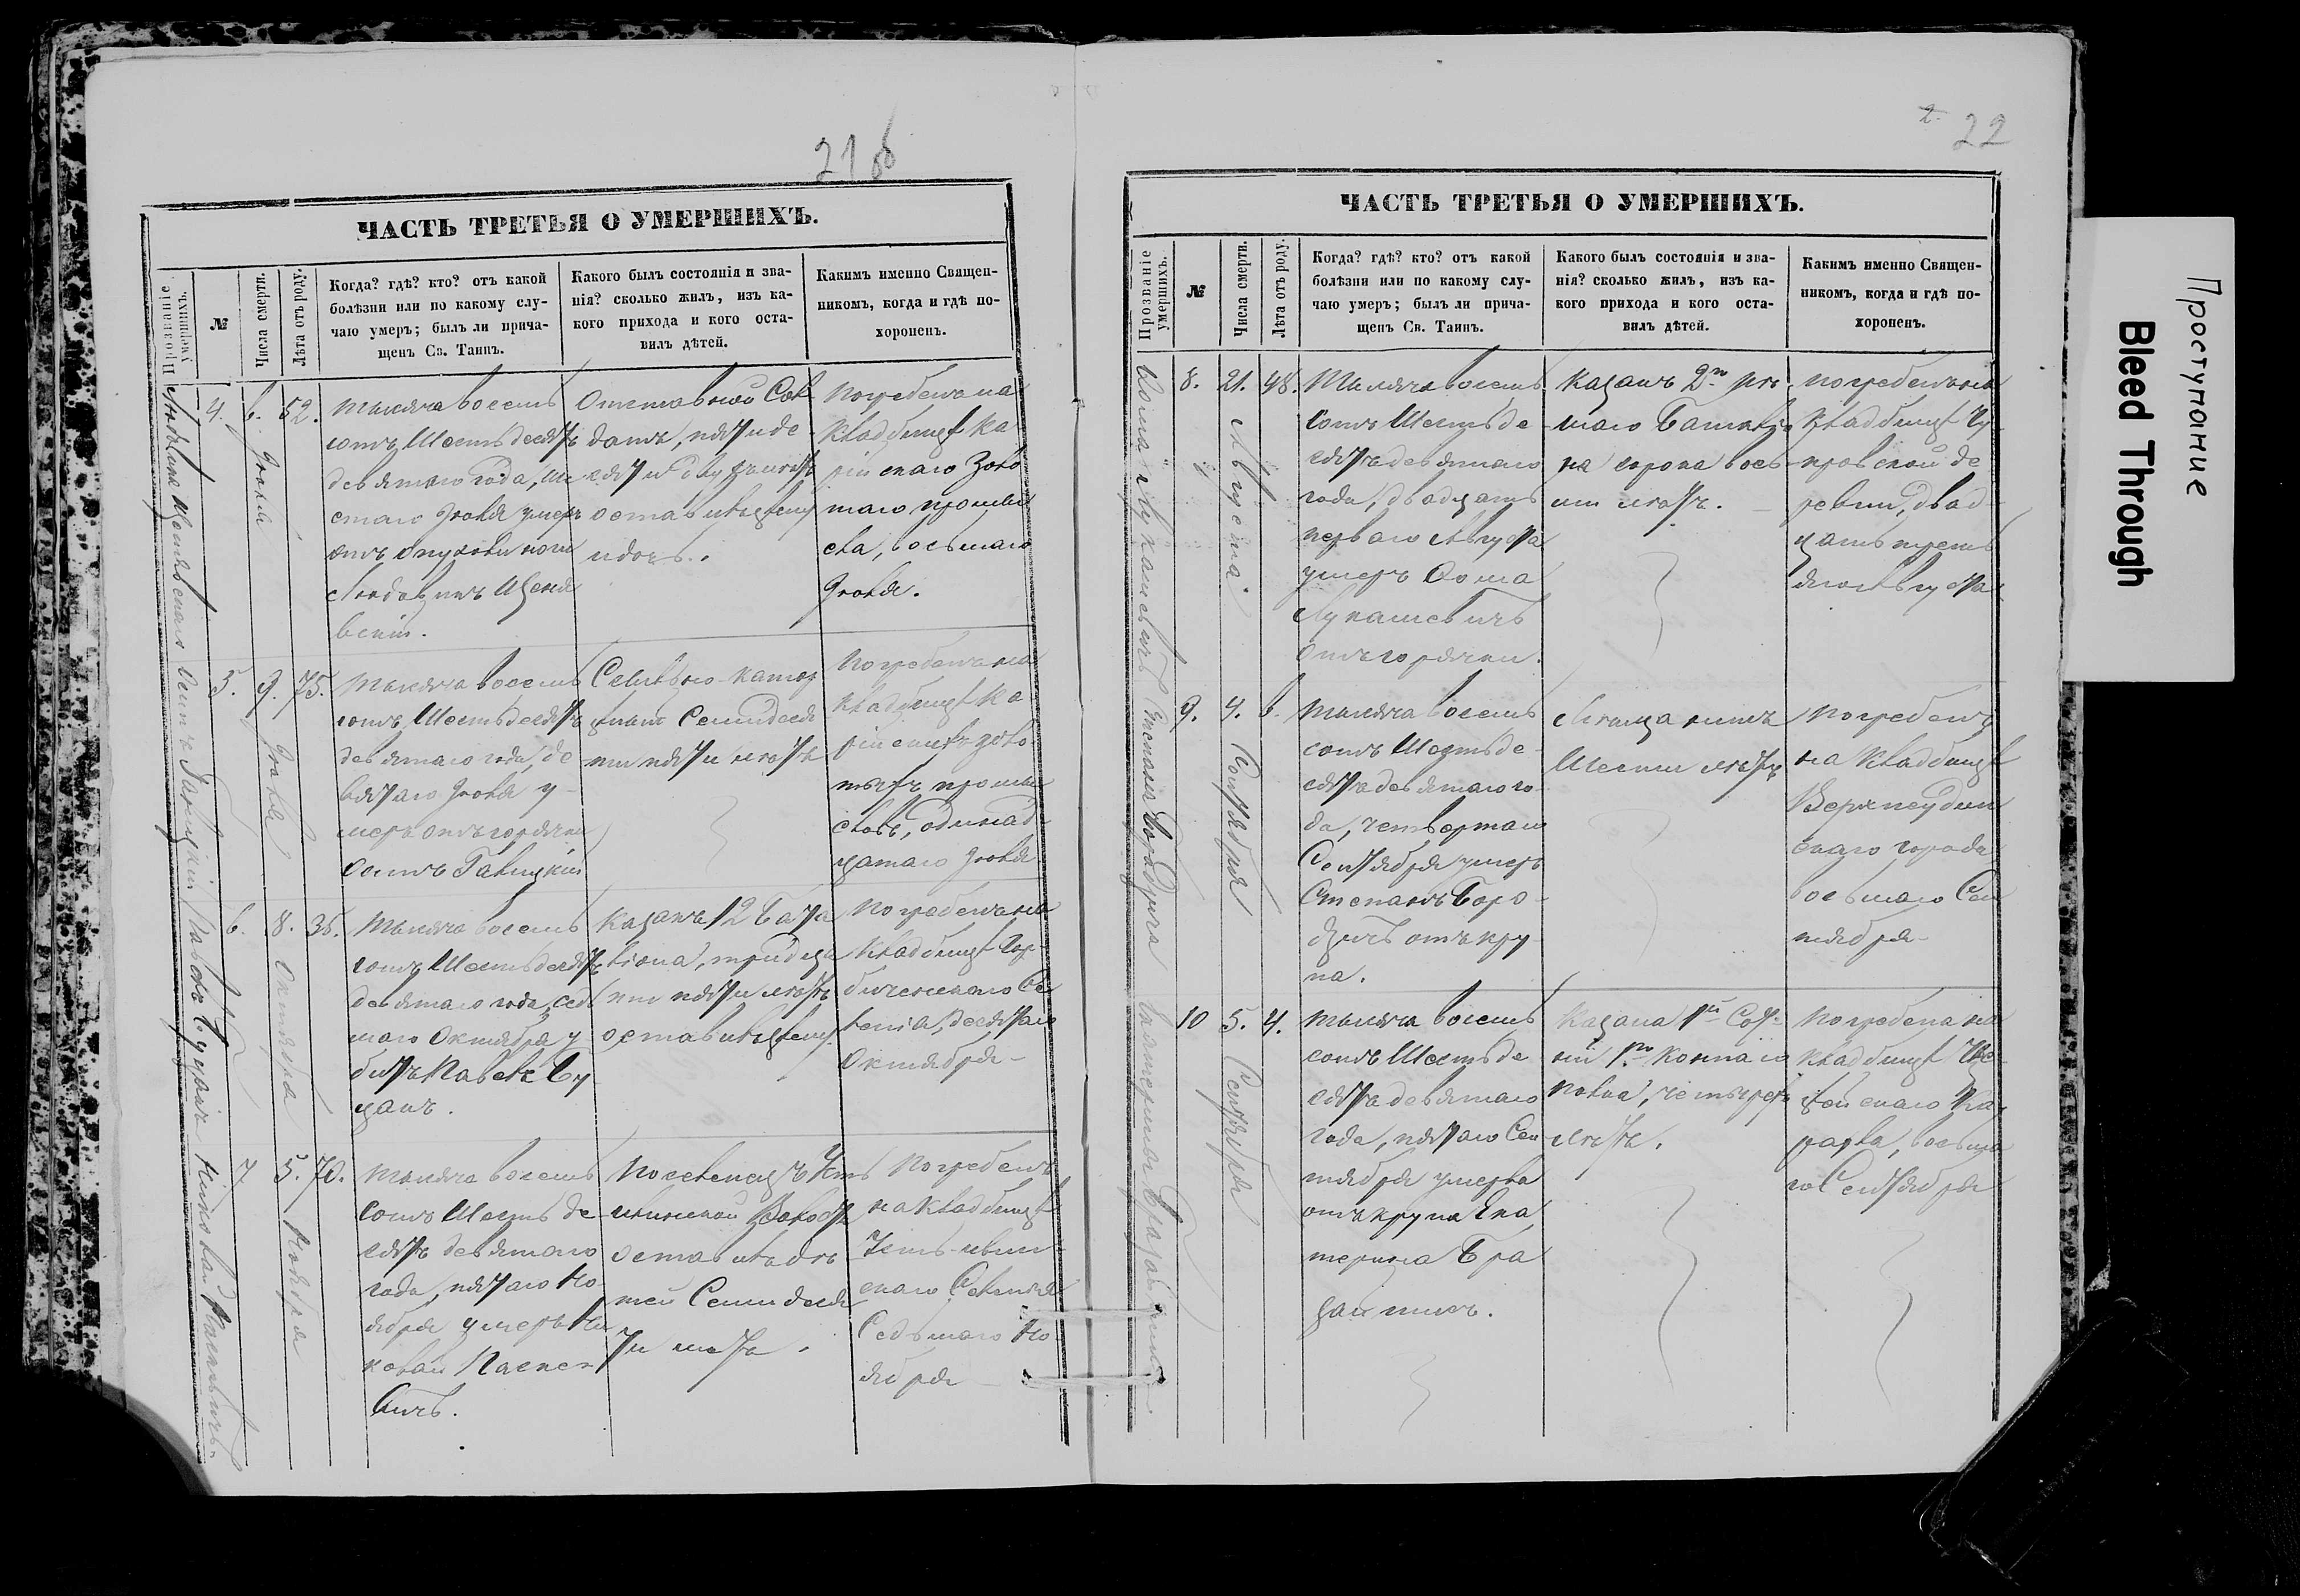 21об
ЧАСТЬ ТРЕТЬЯ О УМЕРШИХЪ.
Прозваніе умершихъ.
№
Числа смерти.
Лѣта отъ роду.
Когда? гдѣ? кто? отъ какой
болѣзни или по какому слу-
чаю умеръ; былъ ли прича-
щенъ Св. Таинъ.
Какого былъ состоянія и зва-
нія? сколько жилъ, изъ ка-
кого прихода и кого оста-
вилъ дѣтей.
Какимъ именно Священ-
никомъ, когда и гдѣ по-
хороненъ.
4.
6.
Іюля
52.
Тысяча восемь
сотъ Шестьдесятъ
девятаго года, ше
стаго Іюля умеръ
отъ опухоли ноги
Людвигъ
вскій.
Отставной Сол
датъ, пятиде
сяти двухъ лѣтъ
оставивъ
Погребенъ на
кладбищѣ Ка
рійскаго Золо
таго промы
сла, восьмаго
Іюля.
5.
9.
Іюля
75.
Тысяча восемь
сотъ Шестьдесятъ
девятаго года, де
вятаго Іюля у-
меръ отъ горячки
Осипъ Гавицкій
Сыльно-катор
жный Семидеся
ти пяти лѣтъ
Погребенъ на
кладбищѣ Ка-
рійскихъ золо
тыхъ промы
словъ, одинад
цатаго Іюля
6.
8.
Октября
35.
Тысяча восемь
сотъ Шестьдесятъ
девятаго года, сед
маго Октября у
битъ Павелъ Бу
цанъ.
Казакъ 12 Бата
ліона, тридца
ти пяти лѣтъ
оставивъ
Погребенъ на
кладбищѣ Гор-
биченскаго Се
ленія, десятаго
Октября-
7
5.
Ноября
70.
Тысяча восемь
Сотъ Шесть де
сятъ девятаго
года, пятаго Но
ября умеръ Ни
колай Паске-
вичъ.
Поселенецъ Усть
илинской Волости
оставивъ дѣ
тей Семидеся
ти лѣтъ.
Погребенъ
на кладбищѣ
Усть-илин-
скаго Селенія
Седьмаго Но-
ября
22
ЧАСТЬ ТРЕТЬЯ О УМЕРШИХЪ.
Прозваніе умершихъ.
№
Числа смерти.
Лѣта отъ роду.
Когда? гдѣ? кто? отъ какой
болѣзни или по какому слу-
чаю умеръ; былъ ли прича-
щенъ Св. Таинъ.
Какого былъ состоянія и зва-
нія? сколько жилъ, изъ ка-
кого прихода и кого оста-
вилъ дѣтей.
Какимъ именно Священ-
никомъ, когда и гдѣ по-
хороненъ.
Фома Лукашевичъ
8.
21.
Августа.
48.
Тысяча восемь
сотъ Шестьде
сятъ девятаго
года, двадцать
перваго Августа
умеръ Фома
Лукашевичъ
отъ горячки.
Казакъ 2го пѣ
шаго Баталіо
на сорока вось
ми лѣтъ.
Погребенъ на
кладбищѣ
де
ревни, двад-
цать треть
яго Августа
9.
4.
Сентября
6.
Тысяча восемь
сотъ Шестьде-
сятъ девятаго го-
да, четвертаго
Сентября умеръ
Степанъ Боро-
дичъ отъ кру-
па.
Мѣщанинъ
Шести лѣтъ
Погребенъ
на кладбищѣ
Верхнеудин
скаго города
восьмаго Сен
тября-
10
5.
Сентября
4.
Тысяча восемь
сотъ Шестьде
сятъ девятаго
года, пятаго Сен
тября умерла
отъ крупа Ека
терина Бра
зайтисъ.
Казака 1й Сот-
ни 1го Коннаго
полка, четырехъ
лѣтъ.
Погребена на
кладбищѣ
скаго Ка-
раула, восьма
го Сентября
Проступоние
Bleed Through